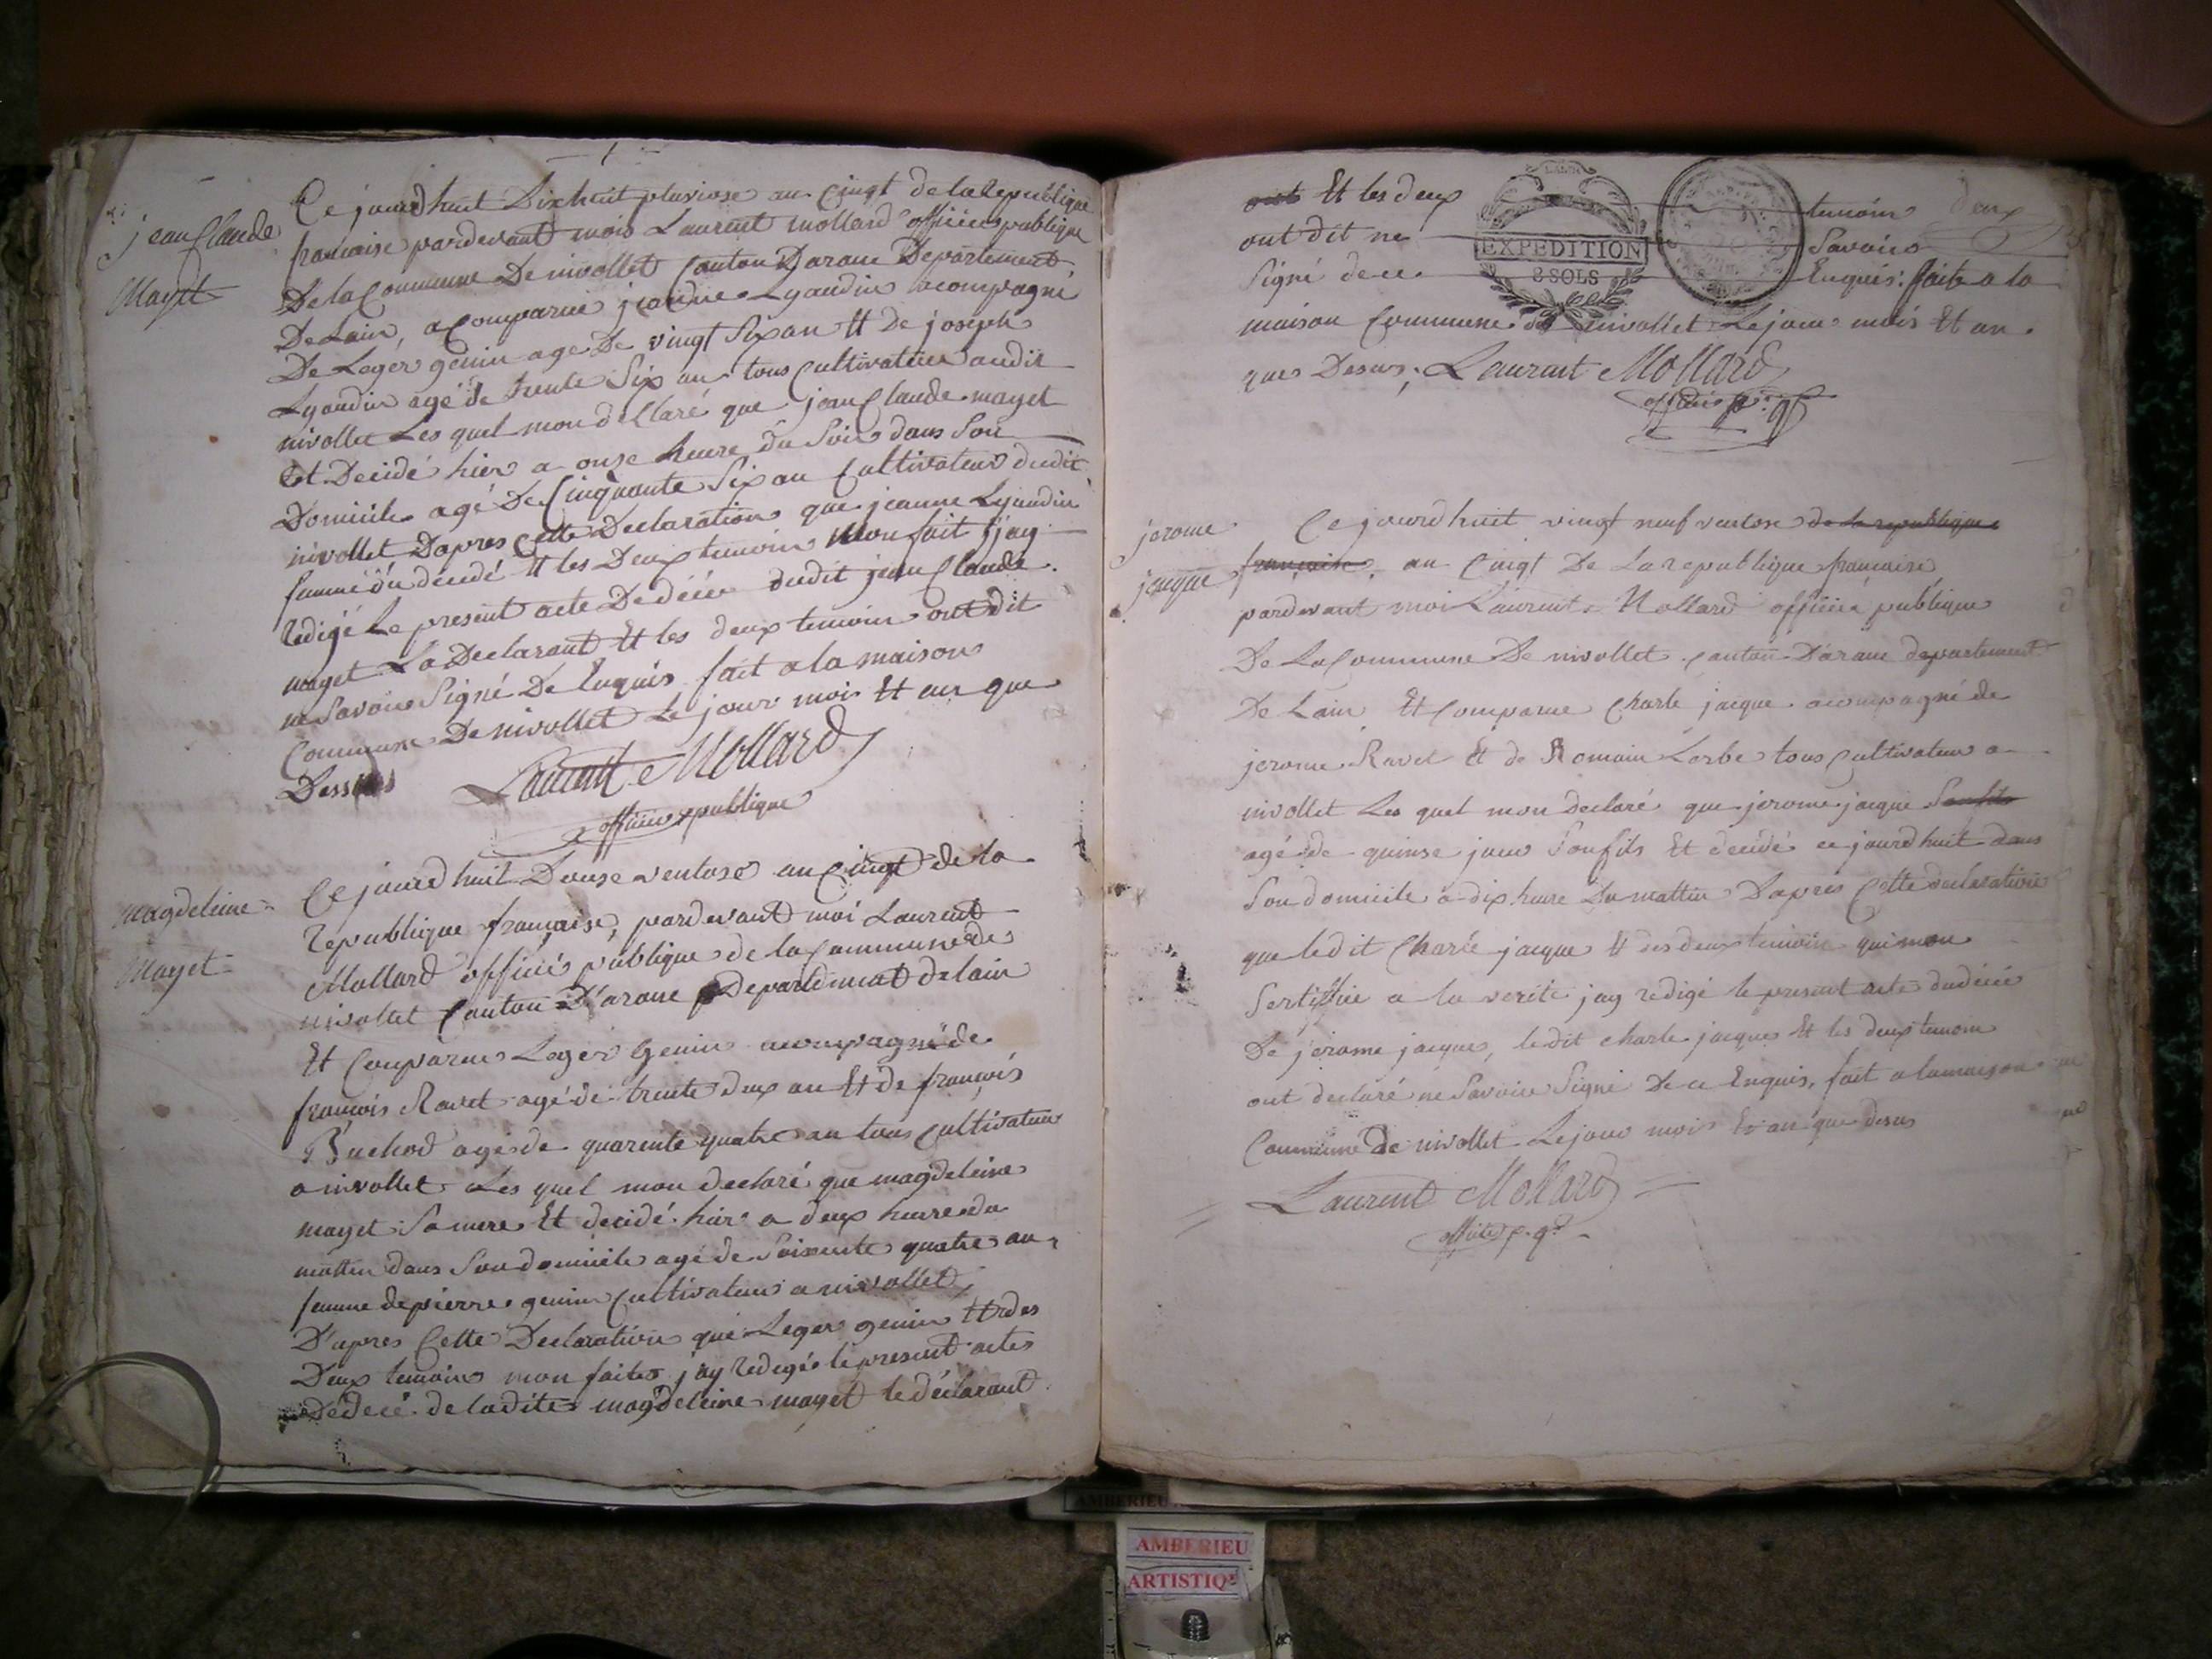 jean Claude
Mayet
Ce jourd huit Dixhuit pluviose an Cinqt de la Republique
francaise pardevant mois Laurent mollard officies publique
De la Commune De nivollet Canton Darane Departement
De Lain, a Comparue jeanne Lyaudin acompagné
De Leger genin age De vingt Six an Et De joseph
Lyaudin agé de trente Six an tous Cultivateur audit
nivollet Les quel mon dellaré que jean Claude mayet
Et Decidé hier a onze heure Du Soir dans Son
Domicile agé De Cinquante Six an Cultivateur dudit
nivollet Dapres Cette Declaration que jeanne Lyaudin
famme du decedé Et les Deux temoin Mon fait j'ay
Redigé Le present acte De décé dudit jean Claude
mayet La Declarant Et les deux temoin ont dit
ne Savoir Signé De Enquis fait a la maison
Commune De nivollet Le jour mois Et an que
Dessus Laurent Mollard
officies publique
magdeleine
Mayet
Ce jourd huit Douse ventose an Cinqt de la
Republique française, pardevant moi Laurent
Mollard officié publique de la Commune de
nivollet Canton D'arane Departement de lain
Et Comparue Leger Genin acompagné de
françois Ravet agé de trente deux an Et de françois
Buchod agé de quarente quatre an tous Cultivateur
a nivollet Les quel mon declaré que magdeleine
mayet Sa mere Et decidé hier a deux heure du
mattin dans Son domicile agé de Soixente quatre an,
famme de pierre genin Cultivateur a nivollet,
D'apres Cette Declaration que Leger genin Et des
Deux temoin mon faites j'ay Redegé le present actes
De decé de ladite magdeleine mayet le déclarant
Et les deux temoin deux
ont dit ne Savoir
Signé de ce Enquis: faite a la
EXPEDITION
8 SOLS
maison Commune de nivollet Le jour mois Et an
que Desus, Laurent Mollard
jerome
jacque
Ce jourd huit vingt neuf ventose de la republique
française, an Cinqt De La republique francaise
pardevant moi Laurent Mollard officiee publique
De La Commune De nivollet Canton D'arane departement
De Lain Et Comparue Charle jacque acompagné de
jerome Ravet Et de Romain Lorbe tous Cultivateur a
nivollet Les quel mon declaré que jerome jacque Son fils
agé de quinse jour Son fils Et decidé ce jourd huit dans
Son domicile a dix heure Du mattin Dapres Cette declaration
que ledit Charle jacque Et des deux temoin qui mon
Sertiffié a la verite jay redigé le present acte dudécé
De jerome jacque, ledit charle jacque Et les deux temoin
ont declaré ne Savoir Signé De ce Enquis, fait a la maison
Commune de nivollet Le jour mois Et an que desus
Laurent Mollard
AMBERIEU
ARTISTIQ